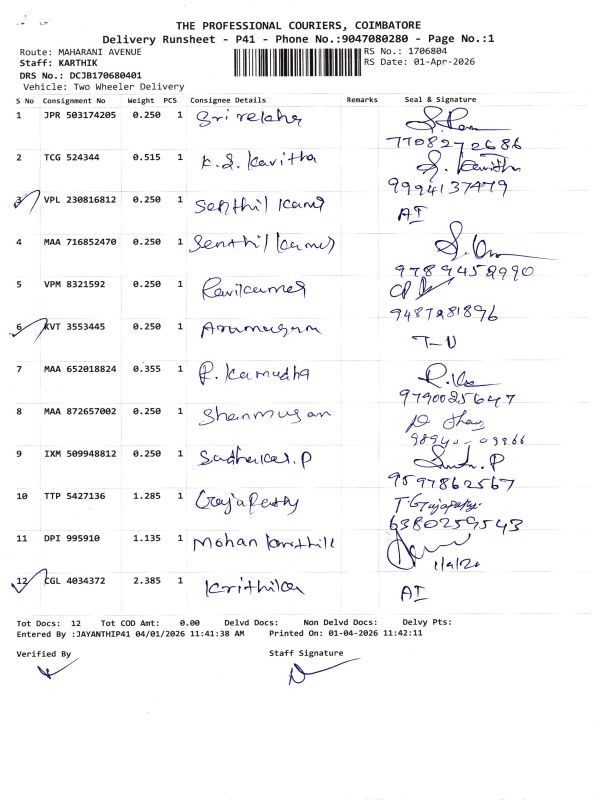 THE PROFESSIONAL COURIERS, COIMBATORE
Delivery Runsheet - P41 - Phone No.:9047080280 - Page No.:1
Route: MAHARANI AVENUE RS No.: 1706804
Staff: KARTHIK RS Date: 01-Apr-2026
DRS No.: DCJB170680401
Vehicle: Two Wheeler Delivery
S No Consignment No Weight PCS Consignee Details Remarks Seal & Signature
1 JPR 503174205 0.250 1 Sri rekha
7708272686
2 TCG 524344 0.515 1 K.S. Kavitha S. Kavitha
9994137479
3 VPL 230816812 0.250 1 Senthil Kumar AI
4 MAA 716852470 0.250 1 Senthil Kumar
9789458990
5 VPM 8321592 0.250 1 Ravikumar
9487281896
6 KVT 3553445 0.250 1 Arumugam
7 MAA 652018824 0.355 1 R. Kamudha
9790025647
8 MAA 872657002 0.250 1 Shanmugan
9 IXM 509948812 0.250 1 Sudhakar.P
9597862567
10 TTP 5427136 1.285 1 Gajapathy T. Gajapathy
6380259543
11 DPI 995910 1.135 1 Mohan karthik
12 CGL 4034372 2.385 1 Krithika AI
Tot Docs: 12 Tot COD Amt: 0.00 Delvd Docs: Non Delvd Docs: Delvy Pts:
Entered By :JAYANTHIP41 04/01/2026 11:41:38 AM Printed On: 01-04-2026 11:42:11
Verified By Staff Signature